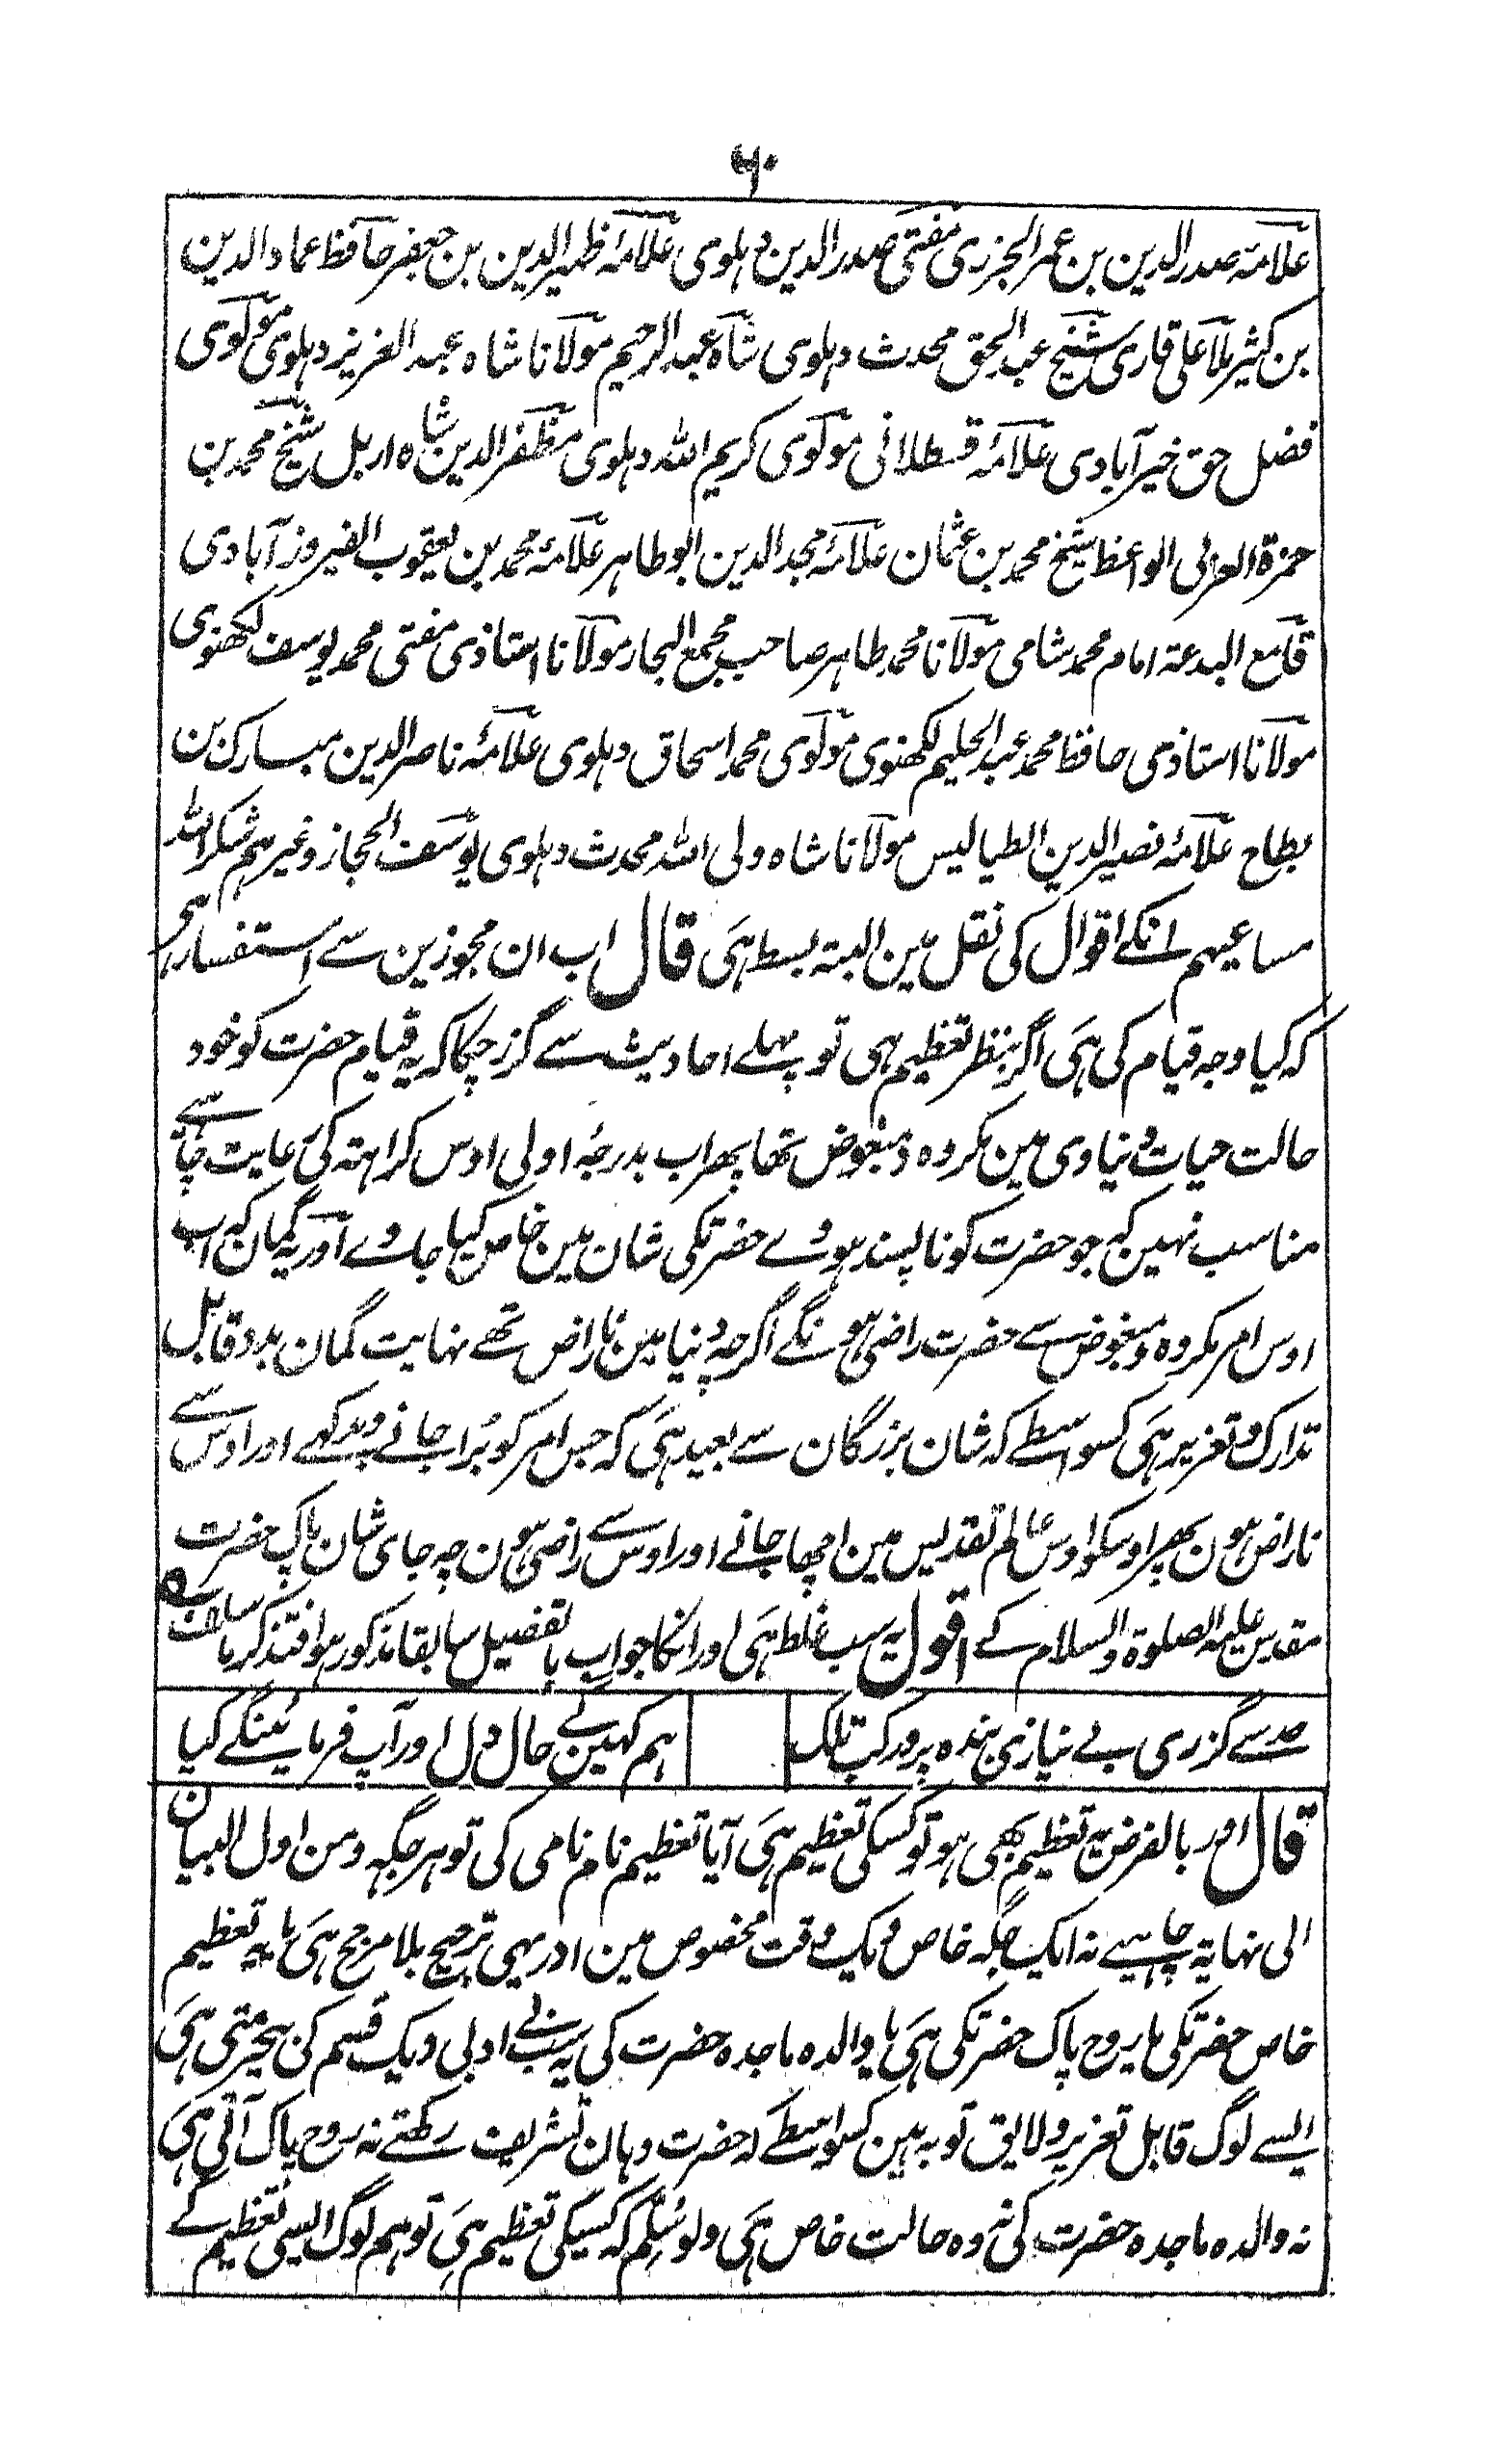 ۶۰
علامہ صدر الدین بن عمر الجزری مفتی صدر الدین دہلوی علامہ ظہیر الدین بن جعفر حافظ عماد الدین
بن کثیر ملا علی قاری شیخ عبد الحق محدث دہلوی شاہ عبد الرحیم مولانا شاہ عبد العزیز دہلوی مولوی
فضل حق خیر آبادی علامہ قسطلانی مولوی کریم اللہ دہلوی مظفر الدین شاہ اربل شیخ محمد بن
حمزۃ العربی الواعظ شیخ محمد بن عثمان علامہ مجد الدین ابو طاہر علامہ محمد بن یعقوب الفیروز آبادی
قامع البدعۃ امام محمد شامی مولانا محمد طاہر صاحب مجمع البحار مولانا استاذی مفتی محمد یوسف لکھنوی
مولانا استاذی حافظ محمد عبد الحلیم لکھنوی مولوی محمد اسحاق دہلوی علامہ ناصر الدین مبارک بن
بطاح علامہ نصیر الدین الطیالیس مولانا شاہ ولی اللہ محدث دہلوی یوسف الحجاز وغیرہم شکر اللہ
مساعیہم انکے اقوال کی نقل مین البتہ بسط ہی قال اب ان مجوزین سے استفسار ہی
کہ کیا وجہ قیام کی ہی اگر بنظر تعظیم ہی تو پہلے احادیث سے گزر چکا کہ یہ قیام حضرت کو خود
حالت حیات دنیاوی مین مکروہ و مبغوض تھا پھر اب بدرجۂ اولی اوس کراہتہ کی رعایت چاہیے
مناسب نہین کہ جو حضرت کو ناپسند ہووے حضرتکی شان مین خاص کیا جاوے اور یہ گمان کہ اب
اوس امر مکروہ و مبغوض سے حضرت راضی ہونگے اگرچہ دنیا مین ناراض تھے نہایت گمان بد و قابل
تدارک و تعزیر ہی کسواسطے کہ شان بزرگان سے بعید ہی کہ جس امر کو برا جانے و بد کہے اور اوس سے
ناراض ہون پھر اوسکو اوس عالم تقدیس مین اچھا جانے اور اوس سے راضی ہون چہ جای شان پاک حضرت
مقدس علیہ الصلوۃ والسلام کے اقول یہ سب غلط ہی اور انکا جواب بالتفصیل سابقا مذکور ہوا فتذکر ما سلف ۵
حد سے گزری بے نیازی بندہ پرور کب تلک ہم کہین گے حال دل اور آپ فرمائینگے کیا
قال اور بالفرض یہ تعظیم بھی ہو تو کسکی تعظیم ہی آیا تعظیم نام نامی کی تو ہر جگہ ومن اول البیان
الی نہایۃ چاہیے نہ ایک جگہ خاص و یک وقت مخصوص مین اور یہی ترجیح بلا مرجح ہی یا یہ تعظیم
خاص حضرتکی یا روح پاک حضرتکی ہی یا والدہ ماجدہ حضرت کی یہ سب بے ادبی و یک قسم کی بیحرمتی ہی
ایسے لوگ قابل تعزیر و لایق توبہ ہین کسواسطے کہ حضرت وہان تشریف رکھتے نہ روح پاک آتی ہی
نہ والدہ ماجدہ حضرت کی نہ وہ حالت خاص ہی ولو سلم کہ کسیکی تعظیم ہی تو ہم لوگ ایسی تعظیم کے